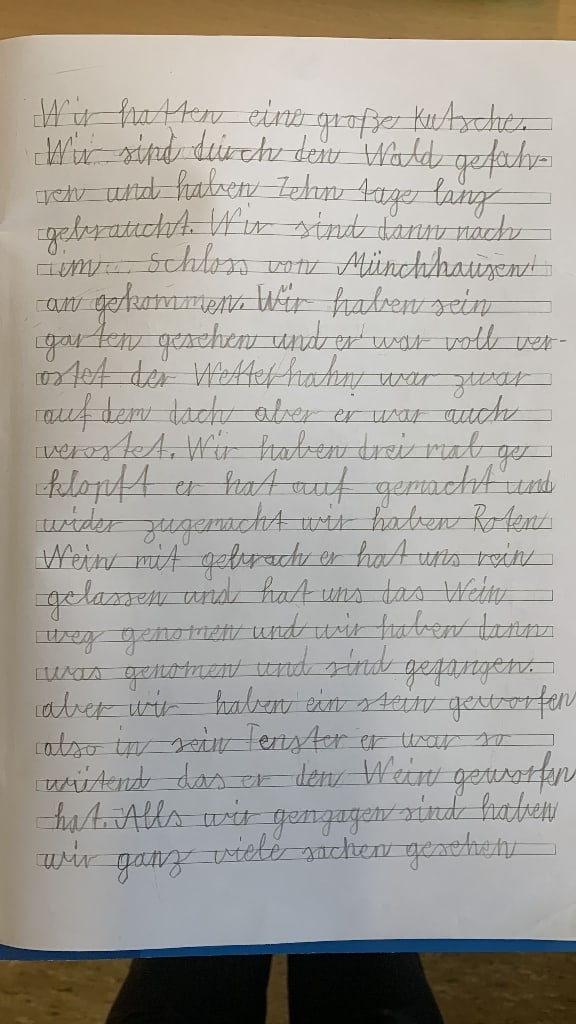 Wir hatten eine große Kutsche.
Wir sind durch den Wald gefah-
ren und haben Zehn tage lang
gebraucht. Wir sind dann nach
im Schloss von Münchhausen
an gekommen. Wir haben sein
garten gesehen und er war voll ver-
ostet der Wetterhahn war zwar
auf dem dach aber er war auch
verostet. Wir haben drei mal ge
klopft er hat auf gemacht und
wider zugemacht wir haben Roten
Wein mit gebrach er hat uns rein
gelassen und hat uns das Wein
weg genomen und wir haben dann
was genomen und sind gegangen.
aber wir haben ein stein geworfen
also in sein Fenster er war so
wütend das er den Wein geworfen
hat. Alls wir gengagen sind haben
wir ganz viele sachen gesehen